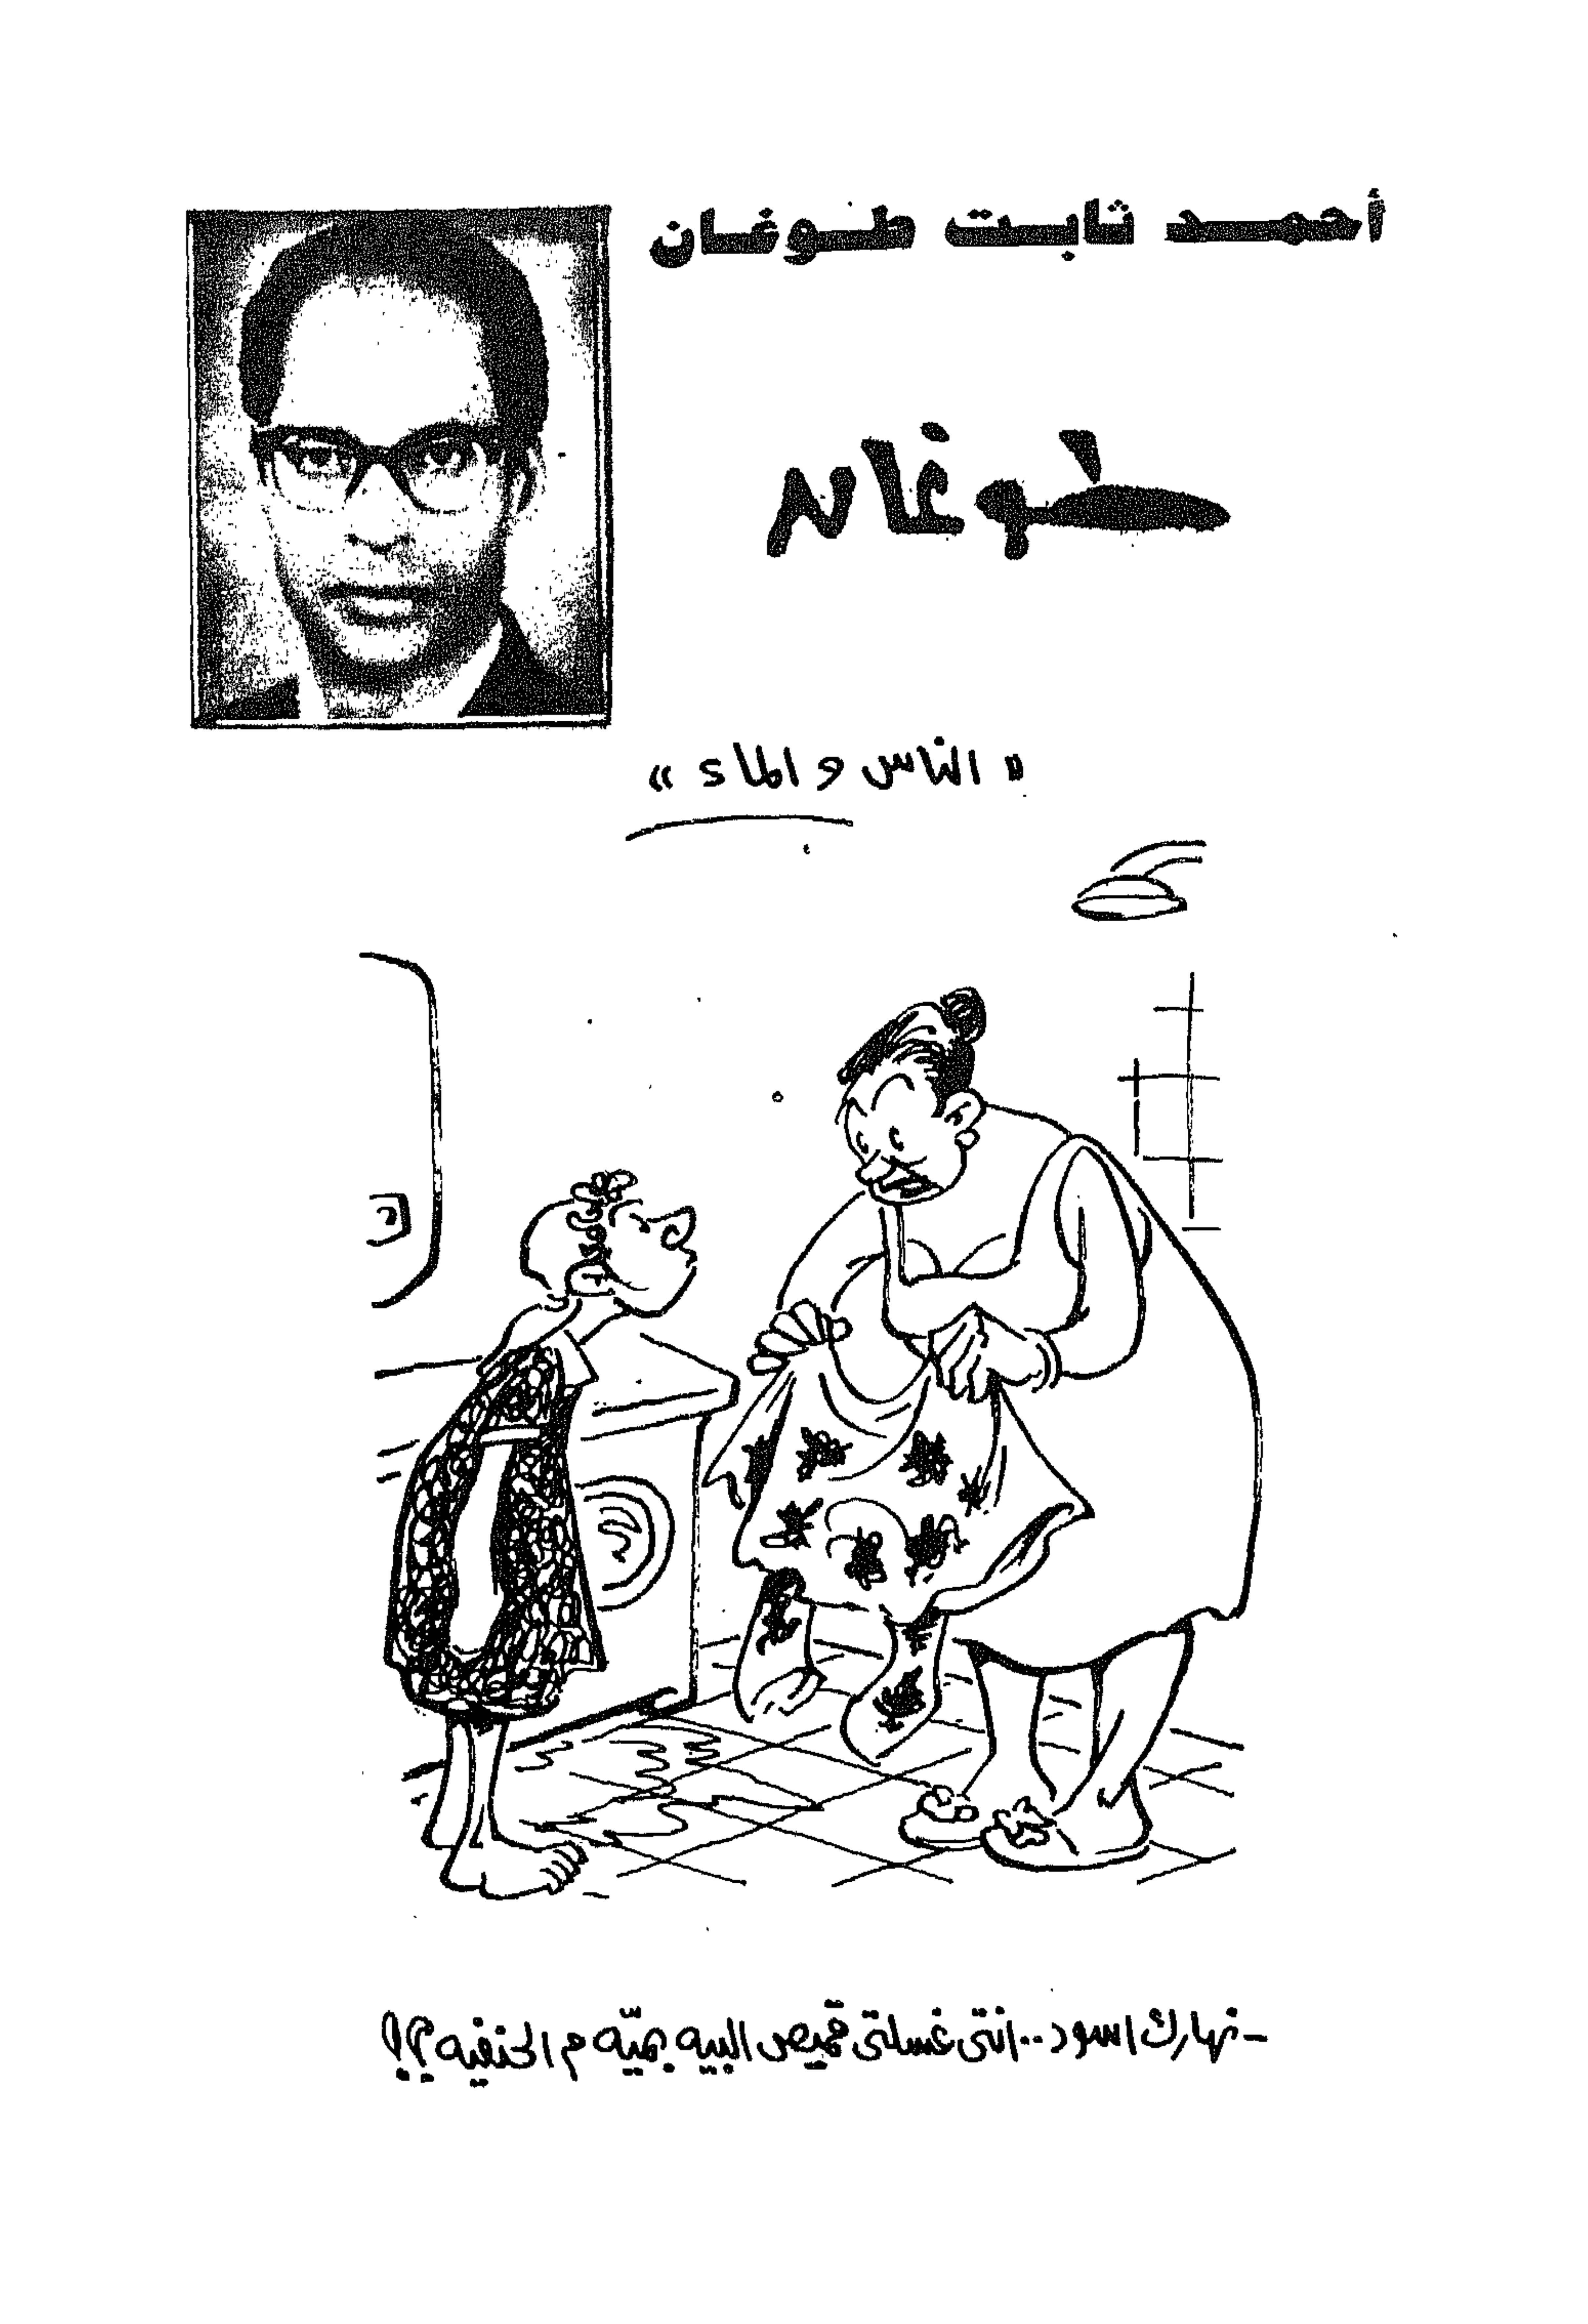 أحمد ثابت طوغان
طوغان
« الناس والماء »
- نهارك اسود .. انتى غسلتى قميص البيه بميّه م الحنفيه ؟!